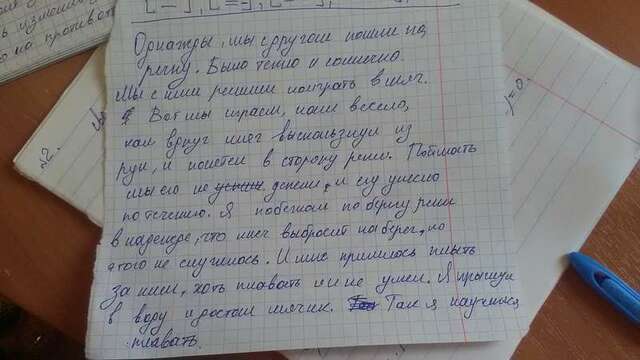 Однажды, мы с другом пошли на
речку. Было тепло и солнечно.
Мы с ним решили поиграть в мяч.
Вот мы играем, нам весело,
как вдруг мяч выскользнул из
рук, и полетел в сторону реки. Поймать
мы его не успели, и его унесло
по течению. Я побежал по берегу реки
в надежде, что мяч выбросит на берег, но
этого не случилось. И мне пришлось плыть
за ним, хоть плавать я и не умел. Я прыгнул
в воду и достал мячик. Так я научился
плавать.
№2.